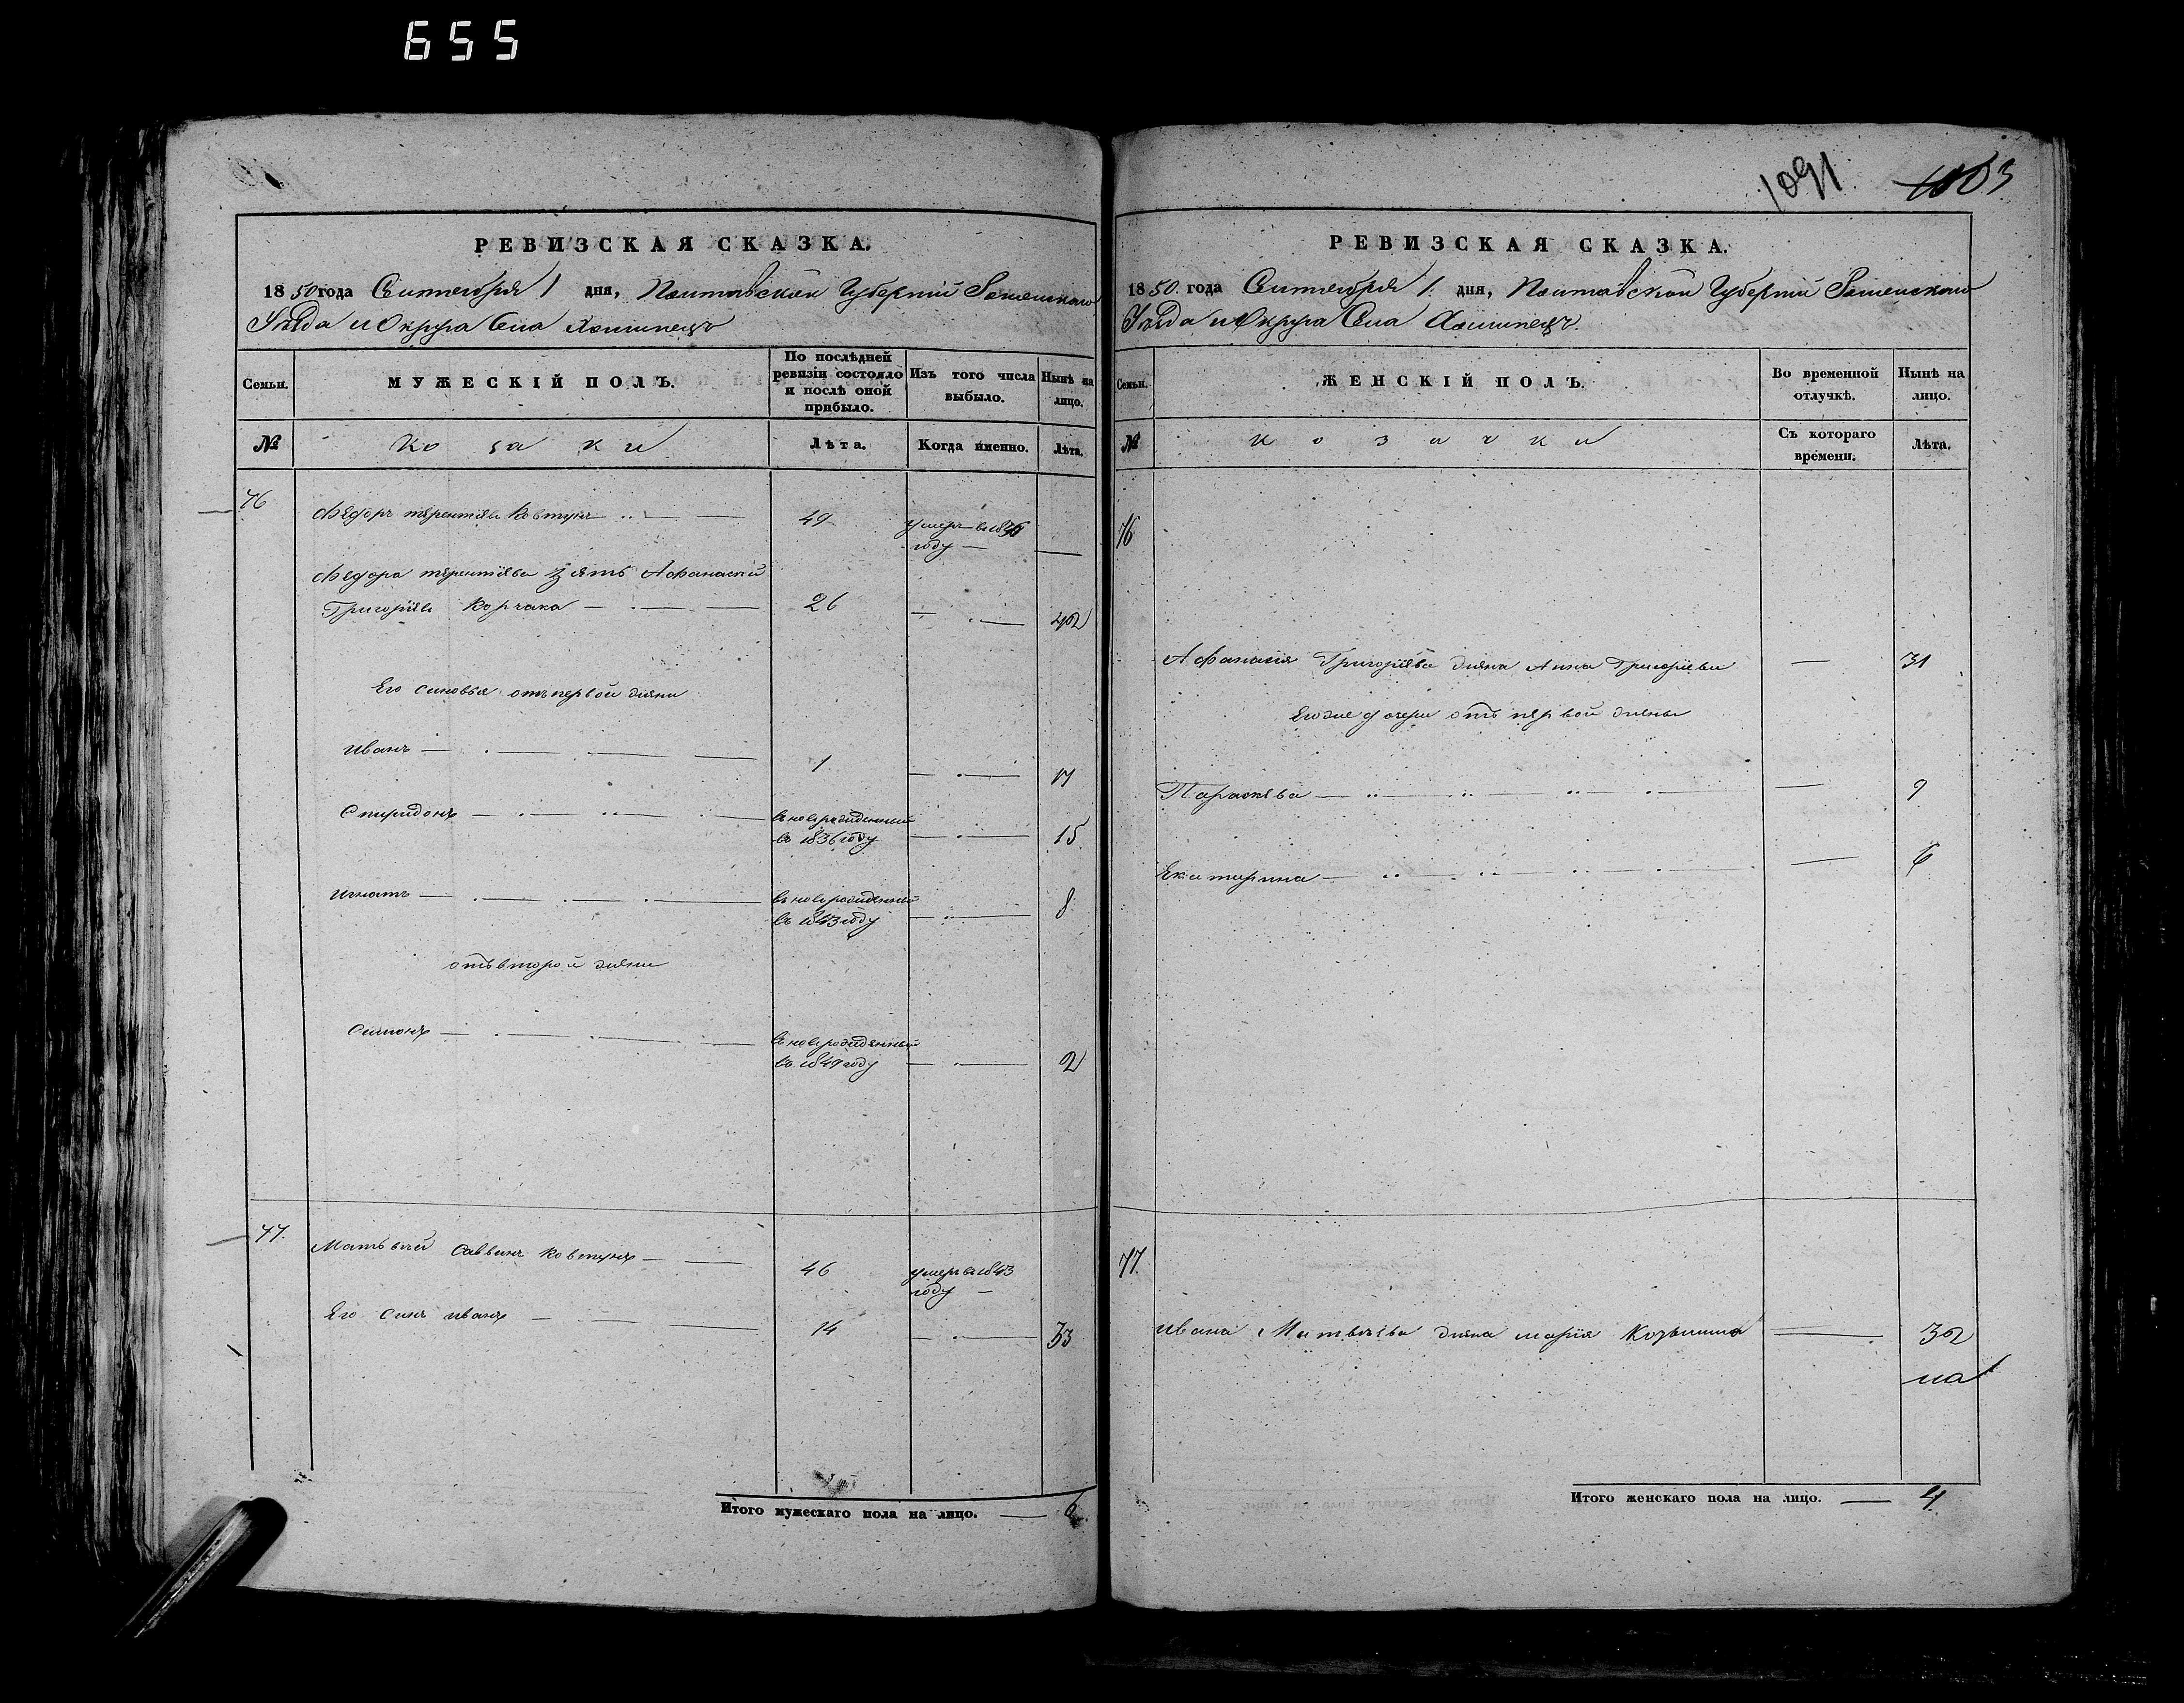 655
РЕВИЗСКАЯ СКАЗКА.
1850 года Сентября 1 дня, Полтавской Губерніи Роменского
Уѣзда и Округа Села Хоминецъ
Семьи.
МУЖЕСКІЙ ПОЛЪ.
По послѣдней ревизіи состояло и послѣ оной прибыло.
Изъ того числа выбыло.
Нынѣ на лицо.
№
Козаки
Лѣта.
Когда именно.
Лѣта.
76
Федоръ терентіевъ Ковтунъ
49
умеръ в 1836
году
Федора терентіева Зять Афанасій
Григоріевъ Корчака
26
42
Его синовья отъ первой жени
Иванъ
1
17
Спиридонъ
вновѣ рожденный
въ 1836 году
15
Игнатъ
вновѣ рожденный
въ 1843 году
8
отъ второй жени
Симонъ
вновѣ рожденный
въ 1849 году
2
77.
Матьвѣй Саввинъ Ковтунъ
46
умеръ в 1843
году
Его Синъ иванъ
14
33
Итого мужескаго пола на лицо. 6
1091
1103
РЕВИЗСКАЯ СКАЗКА.
1850. года Сентября 1. дня, Полтавской Губерніи Роменского
Уѣзда и Округа Села Хоминецъ.
Семьи.
ЖЕНСКІЙ ПОЛЪ.
Во временной отлучкѣ.
Нынѣ на лицо.
№
Козачки
Съ котораго времени.
Лѣта.
76
Афанасія Григоріева жена Анна Григоріева
31
Его же дочери отъ первой жены
Параскева
9
Екатерина
6
77.
ивана Матвѣева жена марія Козьмина
32
Итого женскаго пола на лицо. 4.